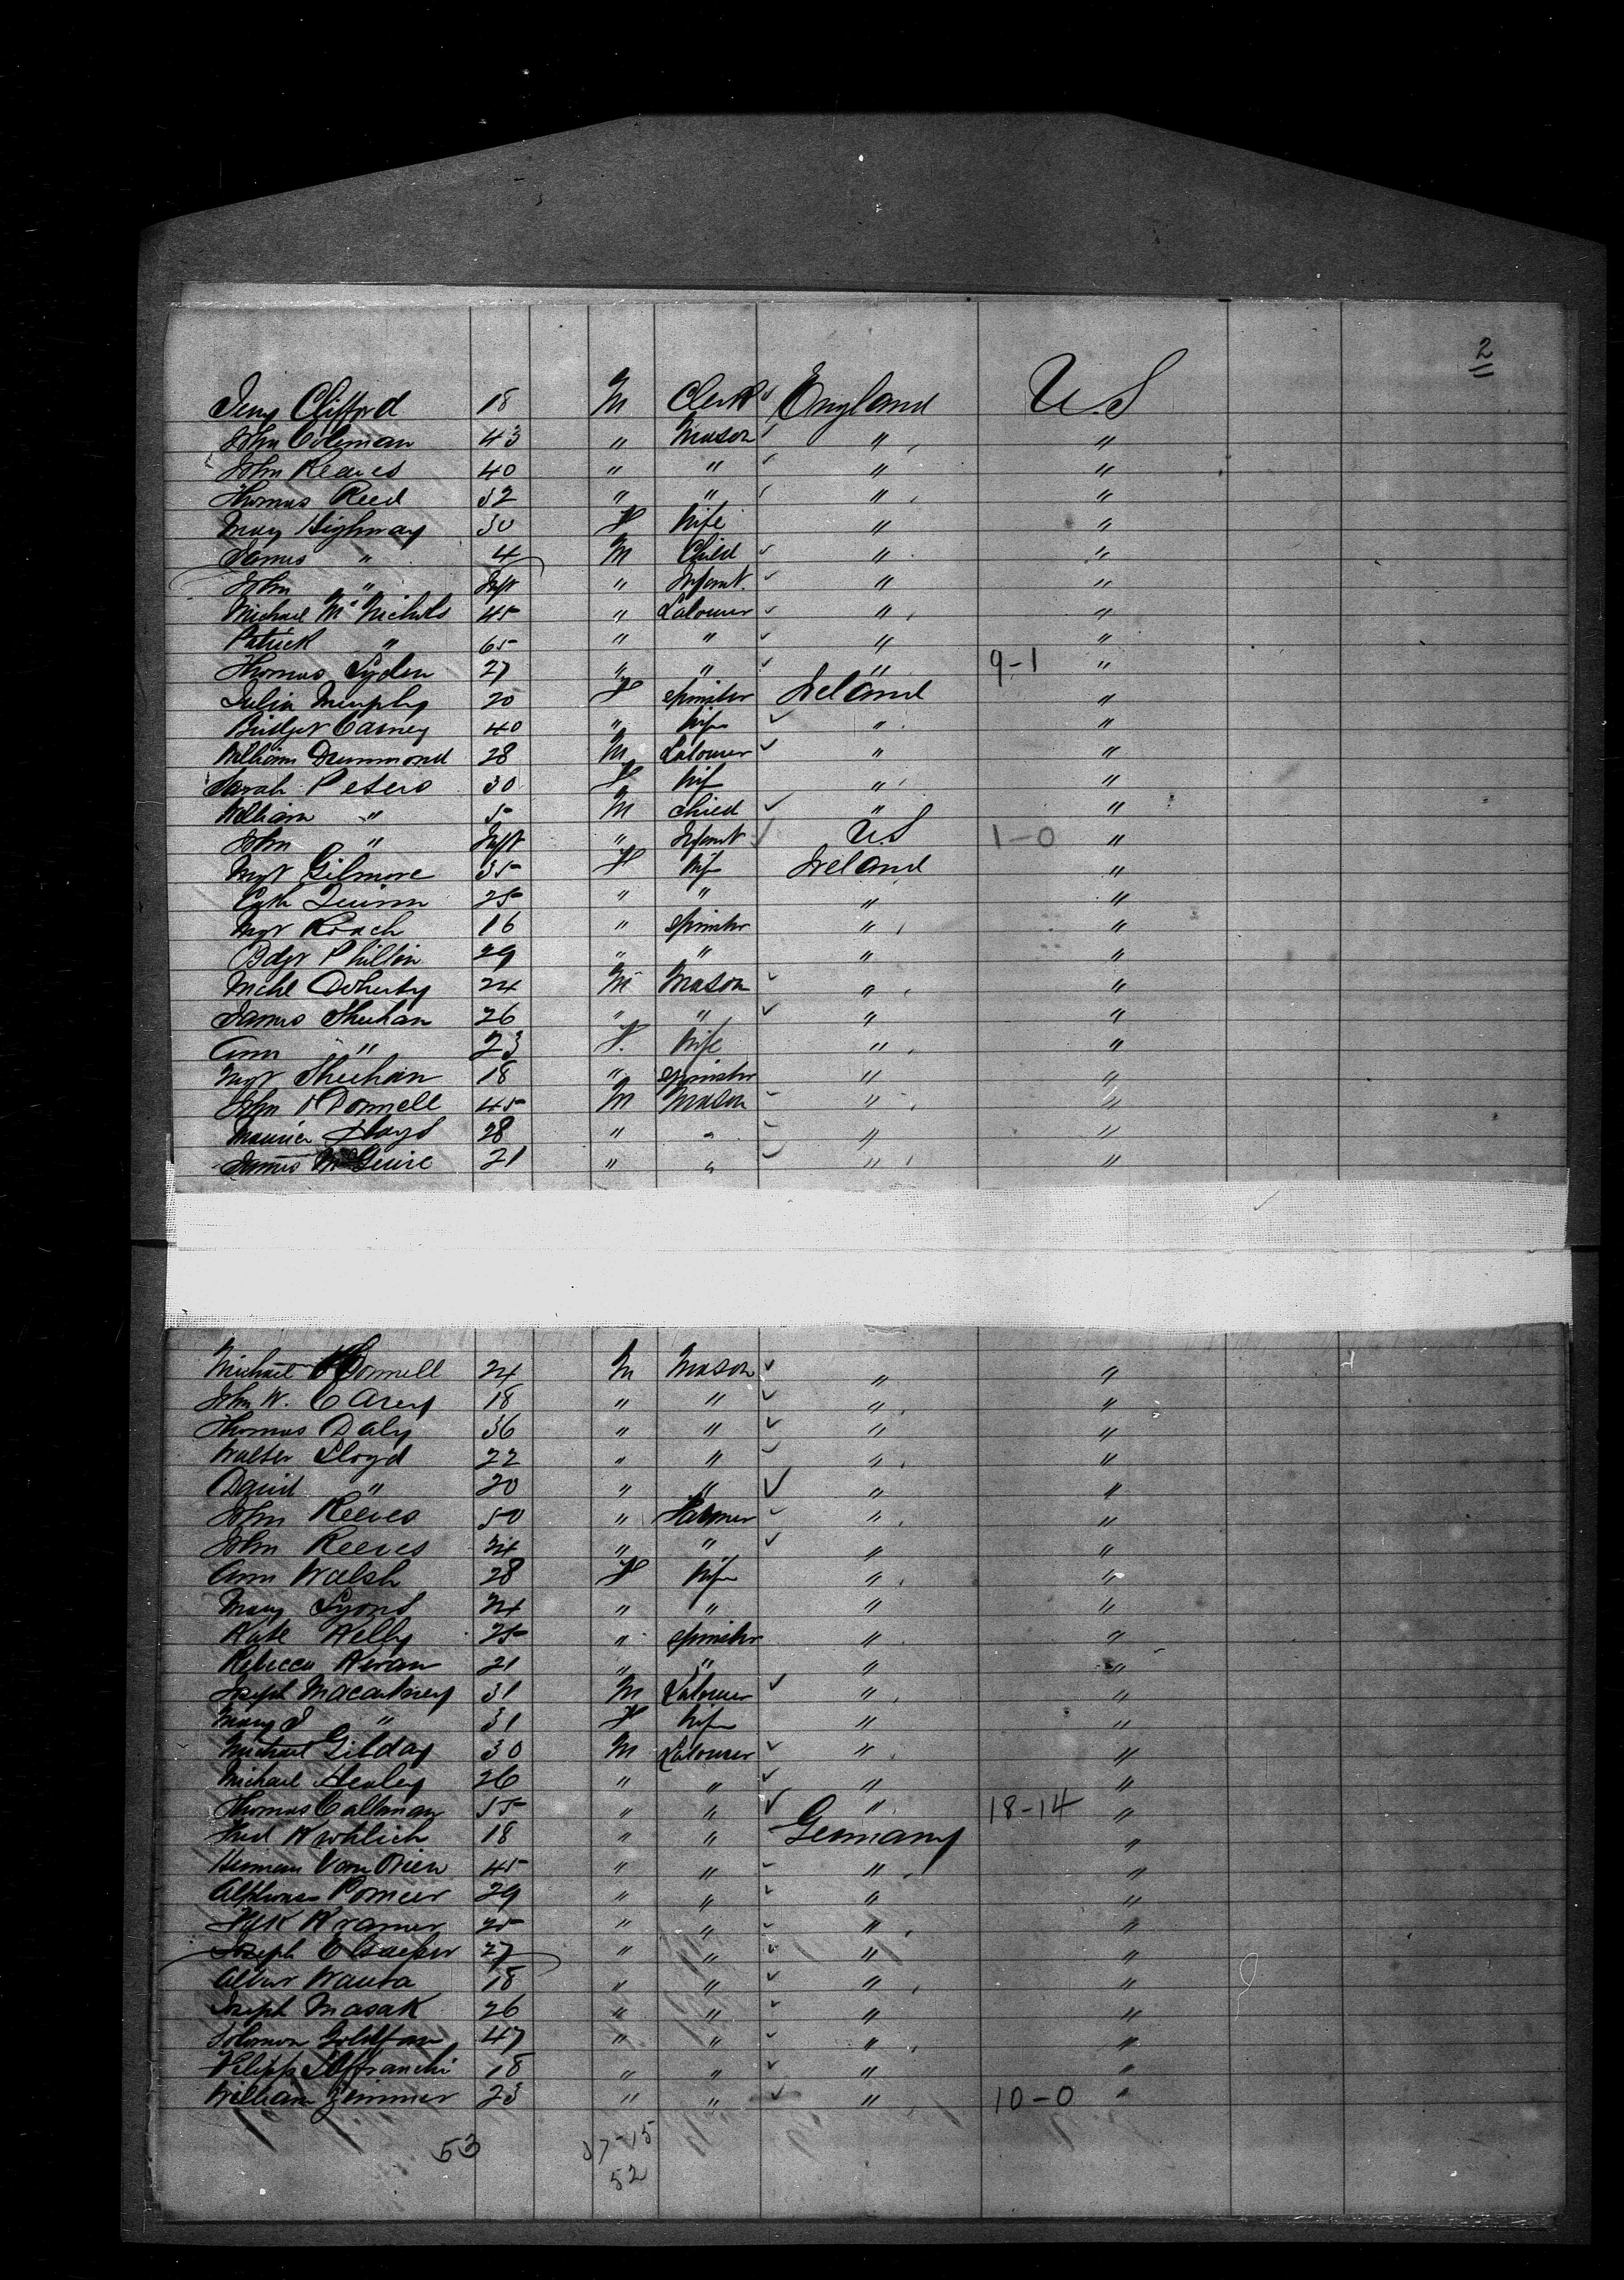 2
Jeny Clifford 18 M Clerk England U.S
John Coleman 43 " Mason " "
John Reaves 40 " " " "
Thomas Reed 32 " " " "
Mary Highway 30 F Wife " "
James " 4 M Child " "
John " Inft " Infant. " "
Michael McNichols 45 " Labourer " "
Patrick " 65 " " " "
Thomas Lyden 27 " " " 9-1 "
Julia Murphy 20 F Spinster Ireland "
Bridget Carney 40 " Wife " "
William Drummond 28 M Labourer " "
Sarah Peters 30 F Wife " "
William " 5 M Child " "
John " Inft " Infant U.S 1-0 "
Mgt Gilmore 35 F Wife Ireland "
Cath Quinn 25 " " " "
Mgt Roach 16 " Spinster " "
Bdgt Philbin 29 " " " "
Michl Doherty 24 M Mason " "
James Sheehan 26 " " " "
Ann " 23 F. Wife " "
Mgt Sheehan 18 " Spinster " "
John O'Donnell 45 M Mason " "
Maurice Hayes 28 " " " "
James McGuire 21 " " " "
Michael O'Donnell 24 M Mason " "
John W. Carey 18 " " " "
Thomas Daly 36 " " " "
Walter Lloyd 22 " " " "
David " 20 " " " "
John Reeves 50 " Farmer " "
John Reeves 24 " " " "
Ann Walsh 28 F Wife " "
Mary Lyons 24 " " " "
Kate Kelly 25 " Spinster " "
Rebecca Kiran 21 " " " "
Joseph Macartney 31 M Labourer " "
Mary J " 31 F Wife " "
Michael Gilday 30 M Labourer " "
Michael Healey 26 " " " "
Thomas Callanan 55 " " " 18-14 "
Fred 18 " " Germany "
Herman Van 45 " " " "
Alphonse 29 " " " "
Fdk Kramer 25 " " " "
Joseph 27 " " " "
Albert 18 " " " "
Joseph Masak 26 " " " "
Solomon 47 " " " "
18 " " " "
William Zimmer 23 " " " 10-0 "
53 37-15
52